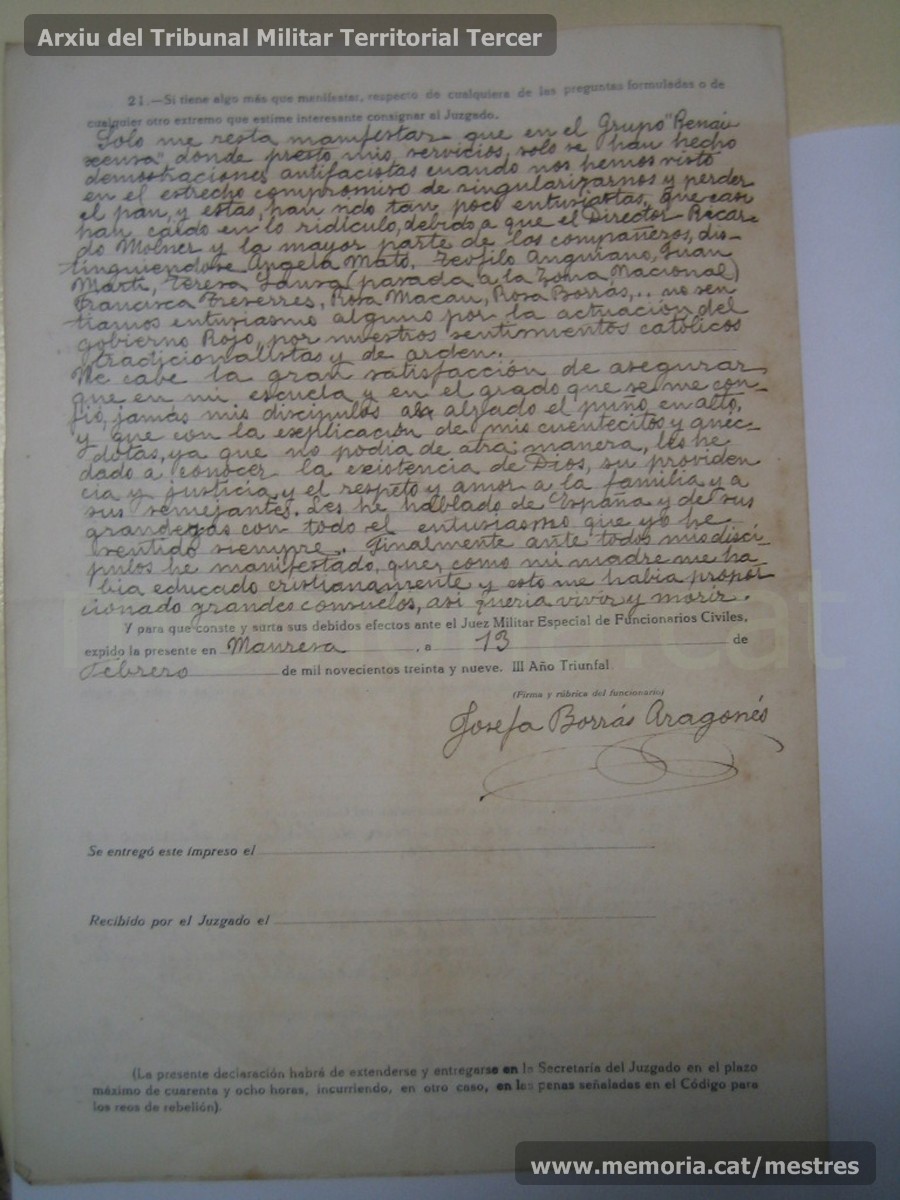 Arxiu del Tribunal Militar Territorial Tercer
21.—Si tiene algo más que manifestar, respecto de cualquiera de las preguntas formuladas o de
cualquier otro extremo que estime interesante consignar al Juzgado.
Solo me resta manifestar que en el Grupo "Renai
xensa" donde presto mis servicios, solo se han hecho
demostraciones antifacistas cuando nos hemos visto
en el estrecho compromiso de singularizarnos y perder
el pan, y estas, han sido tan poco entusiastas, que casi
han caido en lo ridículo, debido a que el Director Ricar-
do Molner y la mayor parte de los compañeros, dis-
tinguiendose Angela Mato, Teofilo Anguiano, Juan
Martí, Teresa (pasada a la Zona Nacional)
Francisca Treserres, Rosa Macau, Rosa Borrás,.. no sen
tiamos entusiasmo alguno por la actuación del
gobierno Rojo, por nuestros sentimientos católicos
tradicionalistas y de orden.
Me cabe la gran satisfacción de asegurar
que en mi escuela y en el grado que se me con-
fió, jamas mis discipulos alzado el puño en alto,
y que con la explicación de mis cuentecitos y anéc-
dotas, ya que no podia de otra manera, les he
dado a conocer la existencia de Dios, su providen
cia y justicia y el respeto y amor a la familia y a
sus semejantes. Les he hablado de España y de sus
grandezas con todo el entusiasmo que yo he
sentido siempre. Finalmente ante todos mis discí-
pulos he manifestado, que, como mi madre me ha
bia educado cristianamente y esto me habia propor
cionado grandes consuelos, asi queria vivir y morir.
Y para que conste y surta sus debidos efectos ante el Juez Militar Especial de Funcionarios Civiles,
expido la presente en Manresa, a 13 de
Febrero de mil novecientos treinta y nueve. III Año Triunfal
(Firma y rúbrica del funcionario)
Josefa Borrás Aragonés
Se entregó este impreso el
Recibido por el Juzgado el
(La presente declaración habrá de extenderse y entregarse en la Secretaría del Juzgado en el plazo
máximo de cuarenta y ocho horas, incurriendo, en otro caso, en las penas señaladas en el Código para
los reos de rebelión).
www.memoria.cat/mestres